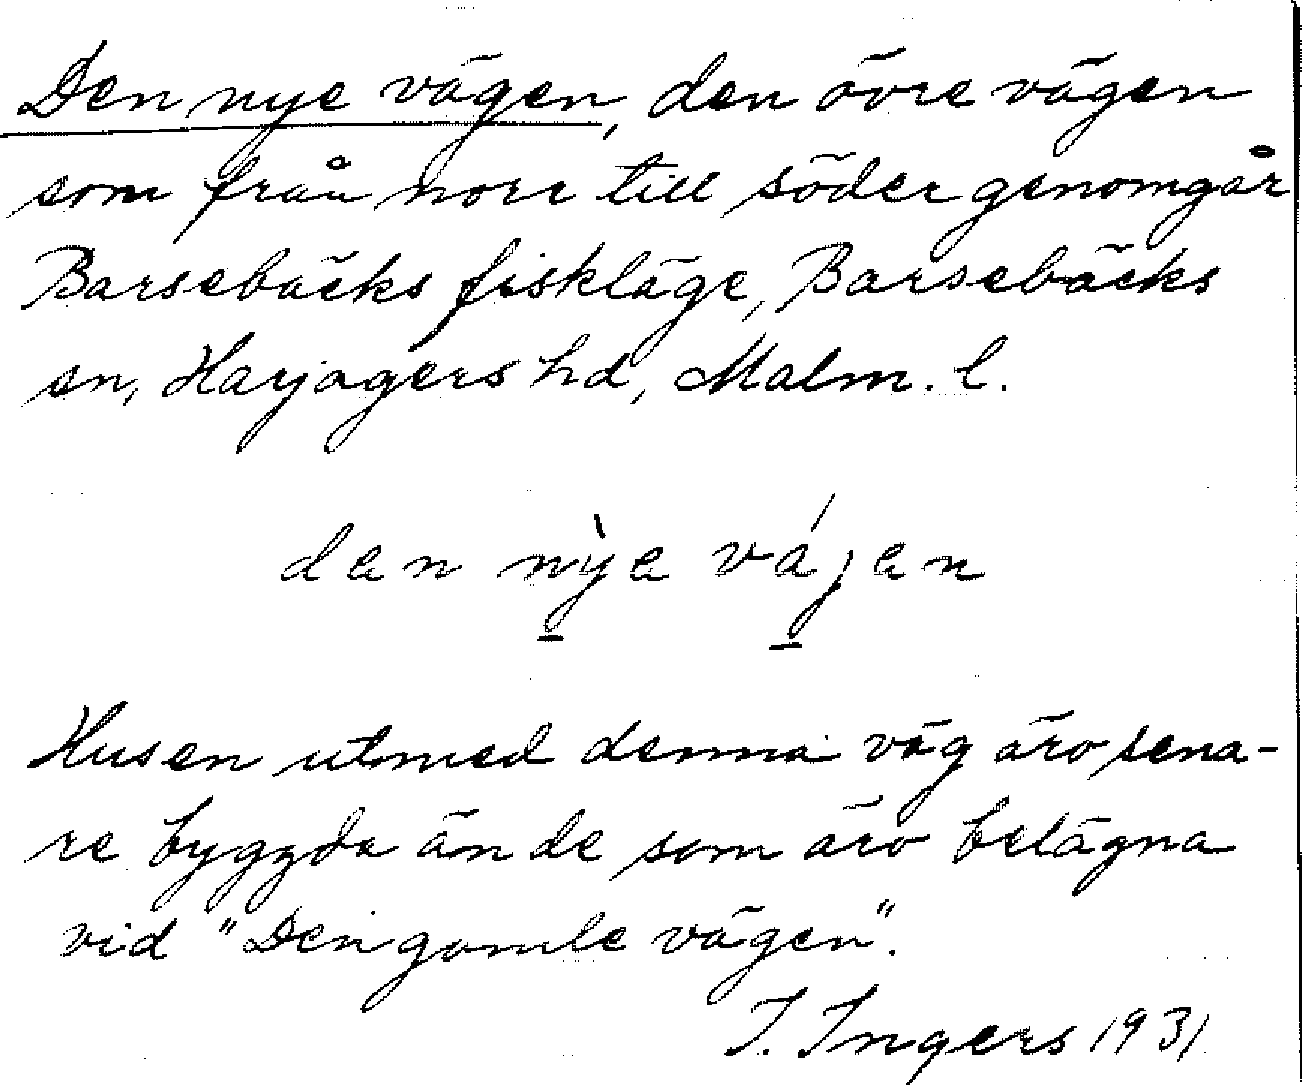 Den nye vägen, den övre vägen
som från norr till söder genomgår
Barsebäcks fiskläge, Barsebäcks
sn, Harjagers hd, Malm. l.
dan nỳa vájan
Husen utmed denna väg äro sena-
re byggda än de som äro belägna
vid "Den gamle vägen".
I. Ingers 1931